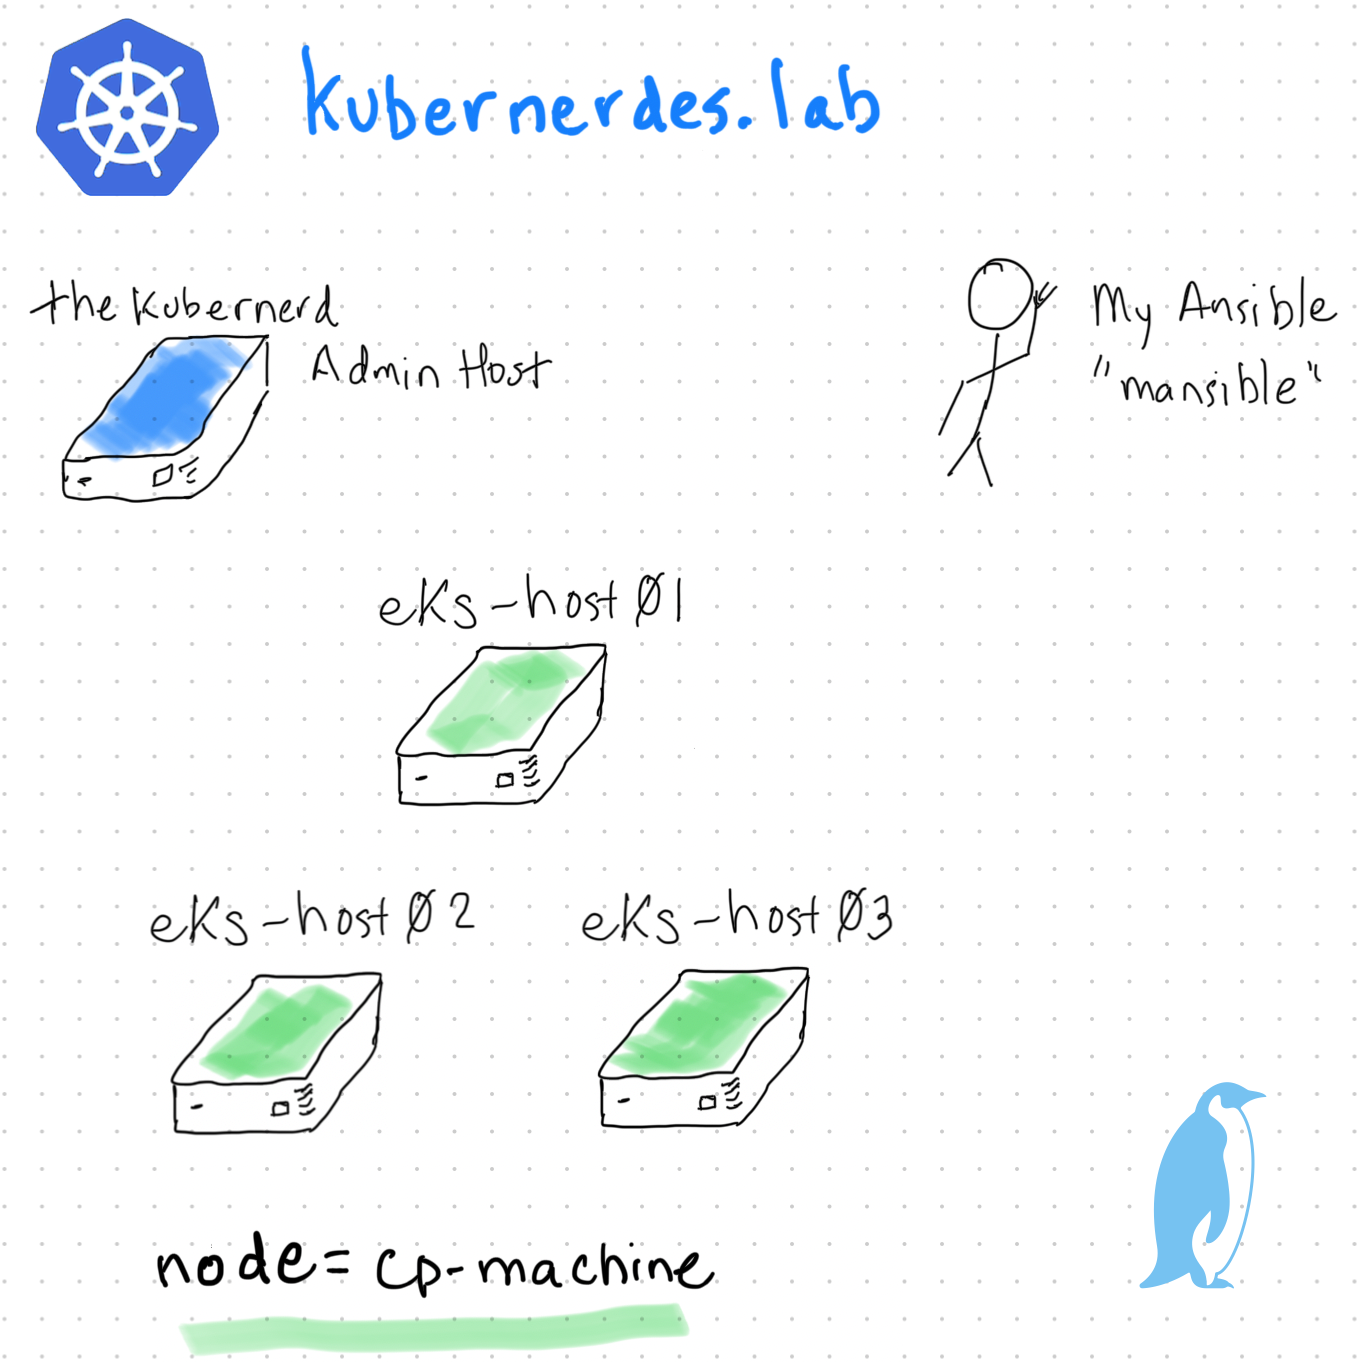 kubernerdes.lab
the Kubernerd
Admin Host
My Ansible
"mansible"
eKs-host Ø1
eKs-host Ø2
eKs-host Ø3
node = cp-machine